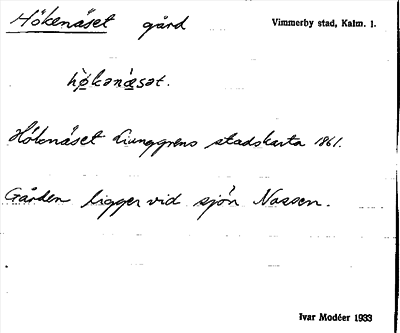 Hökenäset gård Vimmerby stad, Kalm. l.
hø̀kənæ̀sət.
Hökenäset Ljunggrens stadskarta 1861.
Gården ligger vid sjön Nossen.
Ivar Modéer 1933